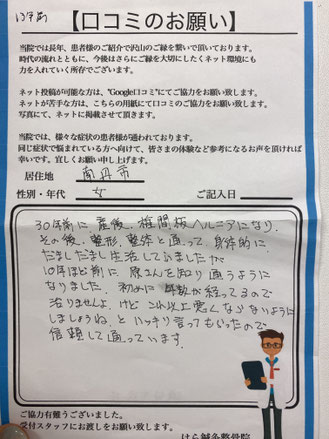 【口コミのお願い】
当院では長年、患者様のご紹介で沢山のご縁を繋いで頂いております。
時代の流れとともに、今後はさらにご縁を大切にしたくネット環境にも
力を入れていく所存でございます。
ネット投稿が可能な方は、"Google口コミ"にてご協力をお願い致します。
ネットが苦手な方は、こちらの用紙にて口コミのご協力をお願い致します。
写真にて、ネットに掲載させて頂きます。
当院では、様々な症状の患者様が通われております。
同じ症状で悩まれている方へ向けて、皆さまの体験など参考になるお声を頂ければ
幸いです。宜しくお願い申し上げます。
居住地 南丹市
性別・年代 女 ご記入日
30年前に産後、椎間板ヘルニアになり、
その後、整形、整体と通って、身体的に
だましだまし生活していましたが
10年ほど前に原さんを知り通うように
なりました。初めに年数が経ってるので
治りませんよ、けどこれ以上悪くならないように
しましょうね、とハッキリ言ってもらったので
信頼して通っています。
ご協力有難うございました。
受付スタッフにお渡しをお願い致します。
はら鍼灸整骨院